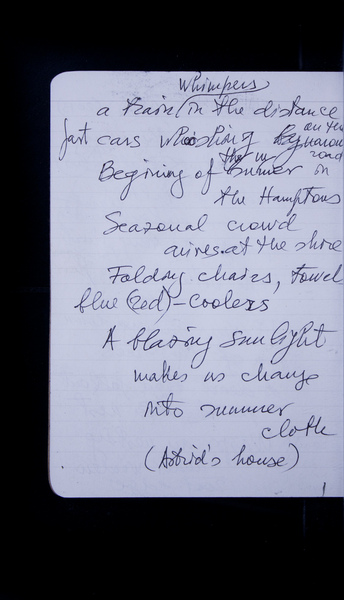 whimpers
a train (in the distance
fast cars whooshing by on the narow road
Begining of the summer in
the Hamptons
Seazonal crowd
arives at the shore
Folding chairs, towel
blue (red) - coolers
A blazing sunlight
makes us change
into summer
cloth
(Astrid's house)